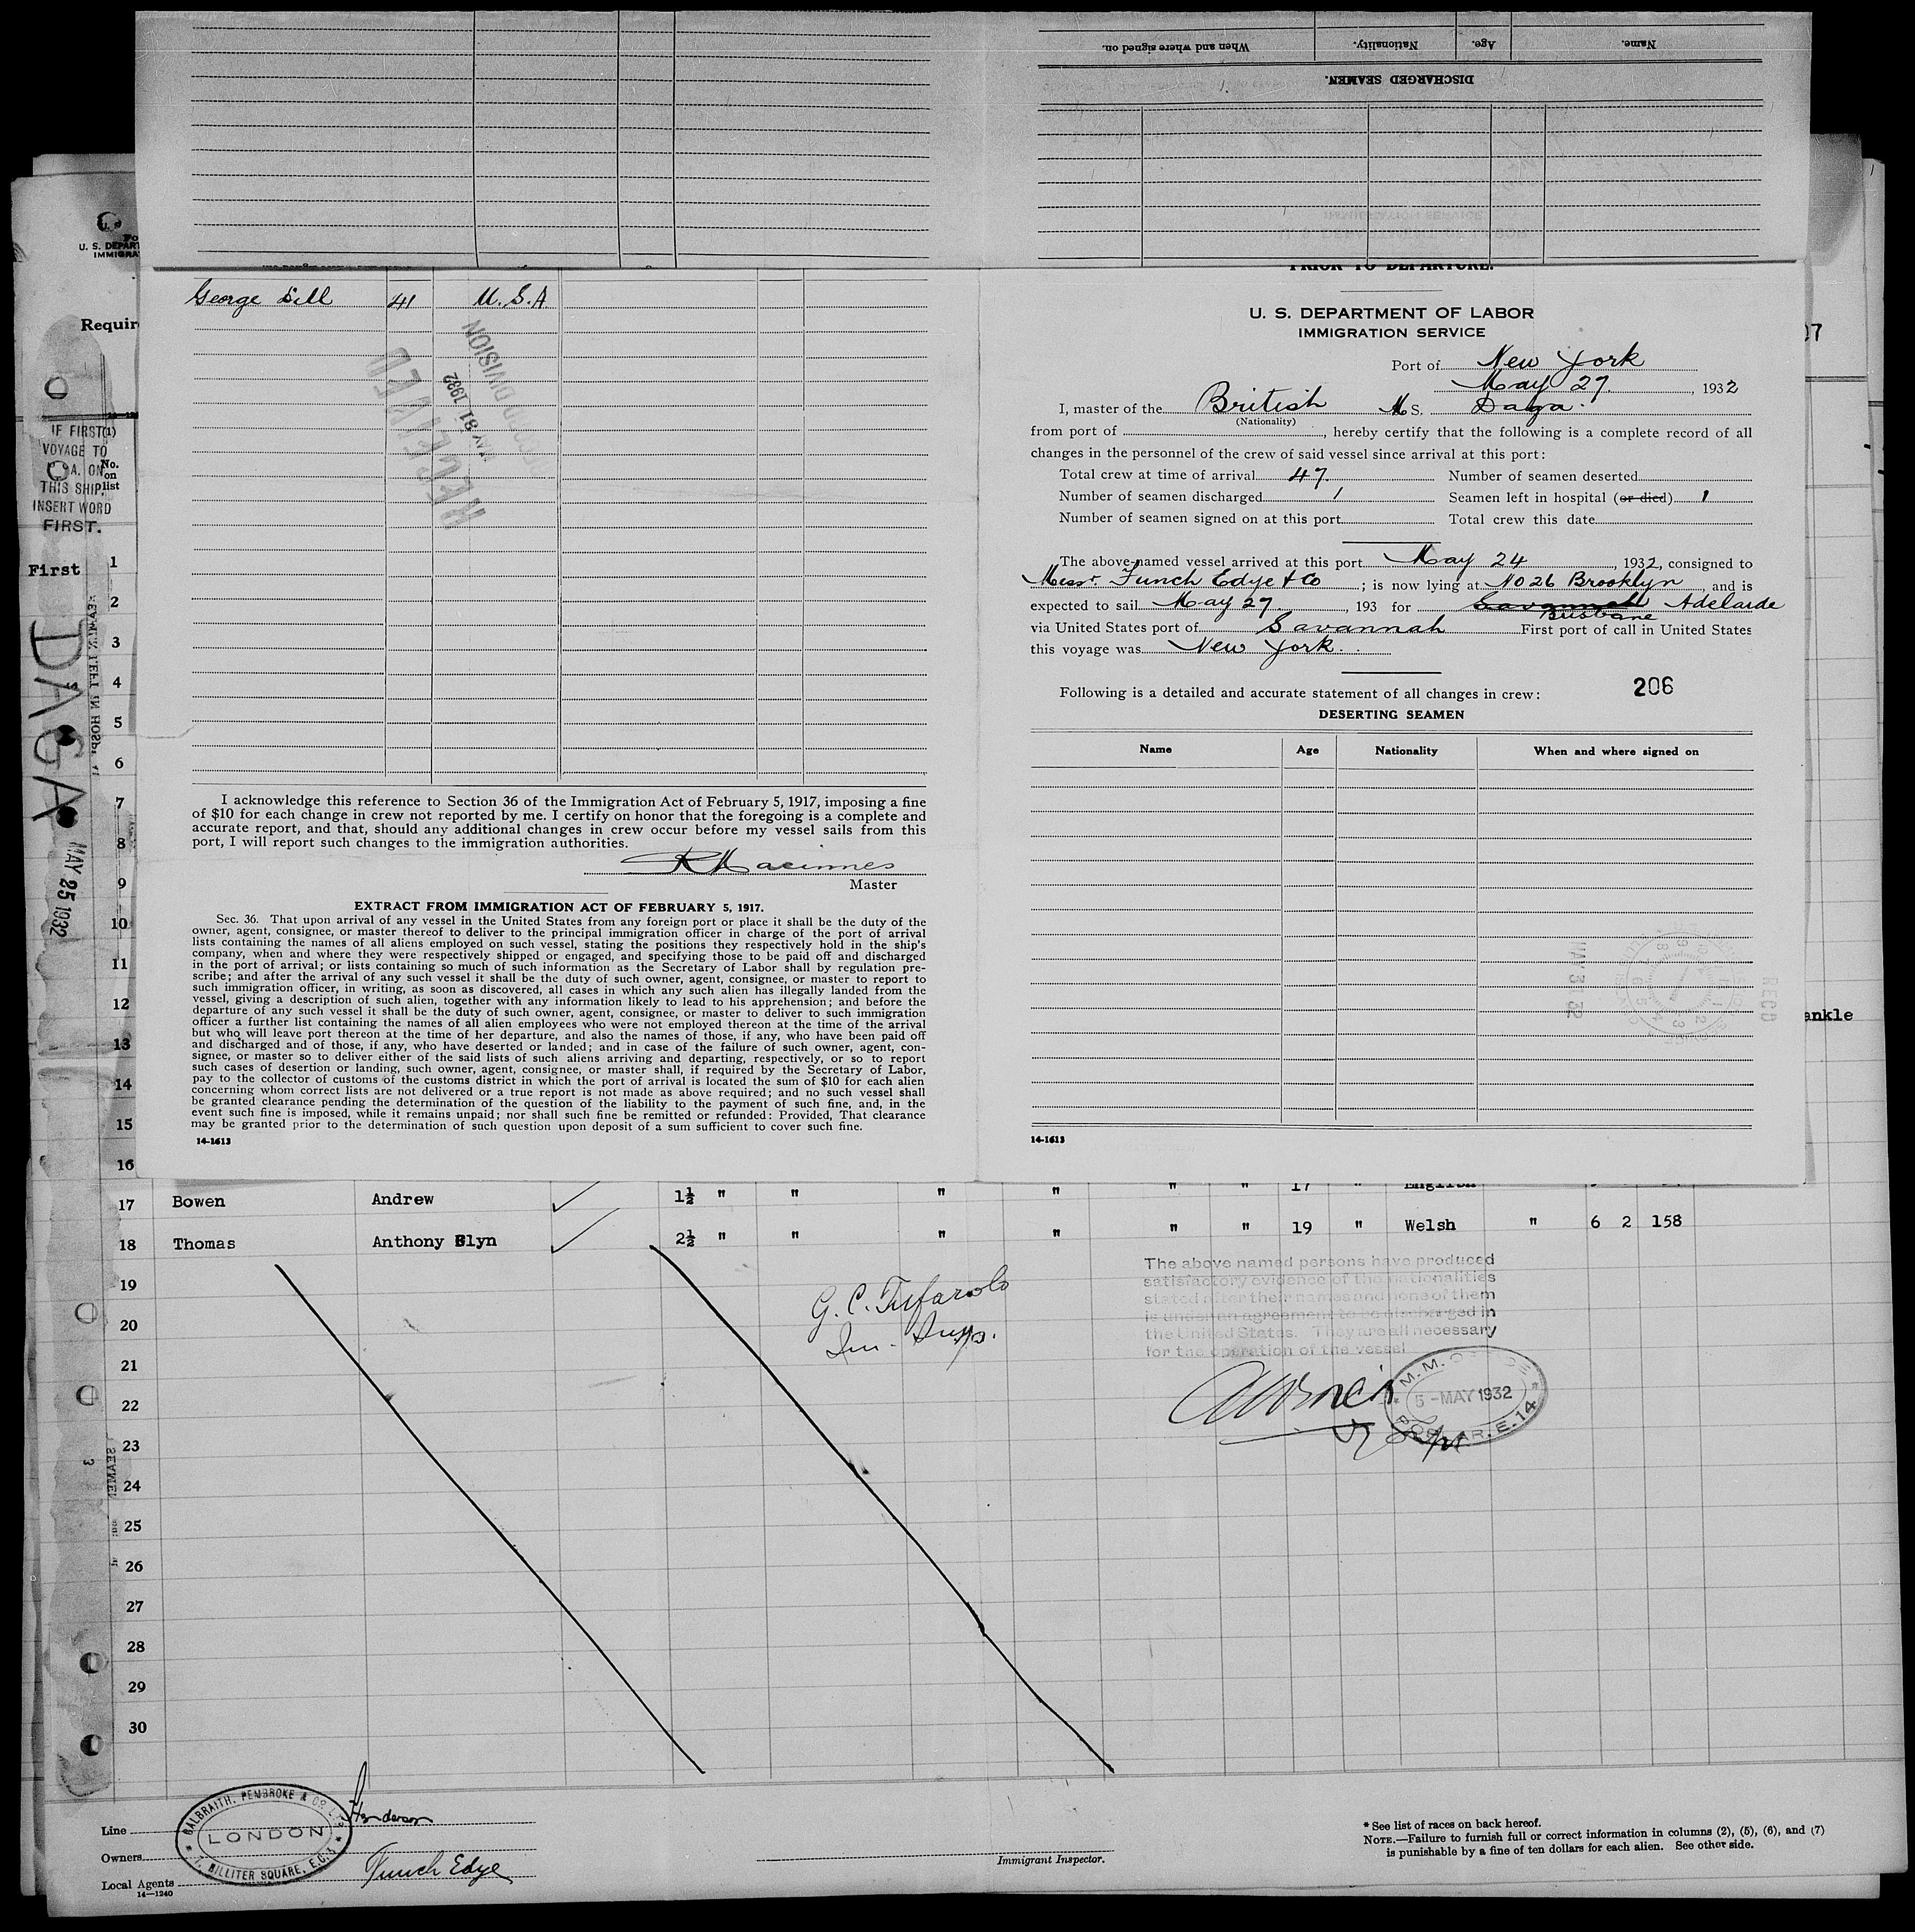 Name.
Age.
Nationality.
When and where signed on.
DISCHARGED SEAMEN.
U. S. DEPAR
IMMIGRA
Requir
IF FIRST (1)
VOYAGE TO
A. ON
THIS SHIP,
INSERT WORD
FIRST.
No.
on
list
First
DAGA
MAY 25 1932
George Dill 41 U.S.A
RECEIVED
MAY 31 1932
RECORD DIVISION
I acknowledge this reference to Section 36 of the Immigration Act of February 5, 1917, imposing a fine
of $10 for each change in crew not reported by me. I certify on honor that the foregoing is a complete and
accurate report, and that, should any additional changes in crew occur before my vessel sails from this
port, I will report such changes to the immigration authorities.
R Macinnes
Master
EXTRACT FROM IMMIGRATION ACT OF FEBRUARY 5, 1917.
Sec. 36. That upon arrival of any vessel in the United States from any foreign port or place it shall be the duty of the
owner, agent, consignee, or master thereof to deliver to the principal immigration officer in charge of the port of arrival
lists containing the names of all aliens employed on such vessel, stating the positions they respectively hold in the ship's
company, when and where they were respectively shipped or engaged, and specifying those to be paid off and discharged
in the port of arrival; or lists containing so much of such information as the Secretary of Labor shall by regulation pre-
scribe; and after the arrival of any such vessel it shall be the duty of such owner, agent, consignee, or master to report to
such immigration officer, in writing, as soon as discovered, all cases in which any such alien has illegally landed from the
vessel, giving a description of such alien, together with any information likely to lead to his apprehension; and before the
departure of any such vessel it shall be the duty of such owner, agent, consignee, or master to deliver to such immigration
officer a further list containing the names of all alien employees who were not employed thereon at the time of the arrival
but who will leave port thereon at the time of her departure, and also the names of those, if any, who have been paid off
and discharged and of those, if any, who have deserted or landed; and in case of the failure of such owner, agent, con-
signee, or master so to deliver either of the said lists of such aliens arriving and departing, respectively, or so to report
such cases of desertion or landing, such owner, agent, consignee, or master shall, if required by the Secretary of Labor,
pay to the collector of customs of the customs district in which the port of arrival is located the sum of $10 for each alien
concerning whom correct lists are not delivered or a true report is not made as above required; and no such vessel shall
be granted clearance pending the determination of the question of the liability to the payment of such fine, and, in the
event such fine is imposed, while it remains unpaid; nor shall such fine be remitted or refunded: Provided, That clearance
may be granted prior to the determination of such question upon deposit of a sum sufficient to cover such fine.
14-1613
PRIOR TO DEPARTURE.
U. S. DEPARTMENT OF LABOR
IMMIGRATION SERVICE
Port of New York
May 27, 1932
I, master of the British M S. Daga.
(Nationality)
from port of , hereby certify that the following is a complete record of all
changes in the personnel of the crew of said vessel since arrival at this port:
Total crew at time of arrival 47. Number of seamen deserted
Number of seamen discharged 1 Seamen left in hospital (or died) 1
Number of seamen signed on at this port Total crew this date
The above-named vessel arrived at this port May 24, 1932, consigned to
Messr. Funch Edye & Co ; is now lying at No 26 Brooklyn, and is
expected to sail May 27, 193 for Savannah Adelaide
Brisbane
via United States port of Savannah First port of call in United States
this voyage was New York.
Following is a detailed and accurate statement of all changes in crew:
206
DESERTING SEAMEN
Name Age Nationality When and where signed on
REC'D
14-1613
ankle
1
2
3
4
5
6
7
8
9
10
11
12
13
14
15
16
17 Bowen Andrew 1½ " " " " " " 17 " English
18 Thomas Anthony Glyn 2½ " " " " " " 19 " Welsh " 6 2 158
19
20
21
22
23
24
25
26
27
28
29
30
G. C. Tufarolo
Im. Insp.
The above named persons have produced
satisfactory evidence of the nationalities
stated after their names and none of them
is under an agreement to be discharged in
the United States. They are all necessary
for the operation of the vessel
M.M. OFFICE
5 - MAY 1932
POPLAR. E. 14
Line Henderson
Owners
Local Agents Funch Edye
14—1240
GALBRAITH, PEMBROKE & CO LTD
LONDON
7, BILLITER SQUARE, E.C.3
Immigrant Inspector.
* See list of races on back hereof.
NOTE.—Failure to furnish full or correct information in columns (2), (5), (6), and (7)
is punishable by a fine of ten dollars for each alien. See other side.